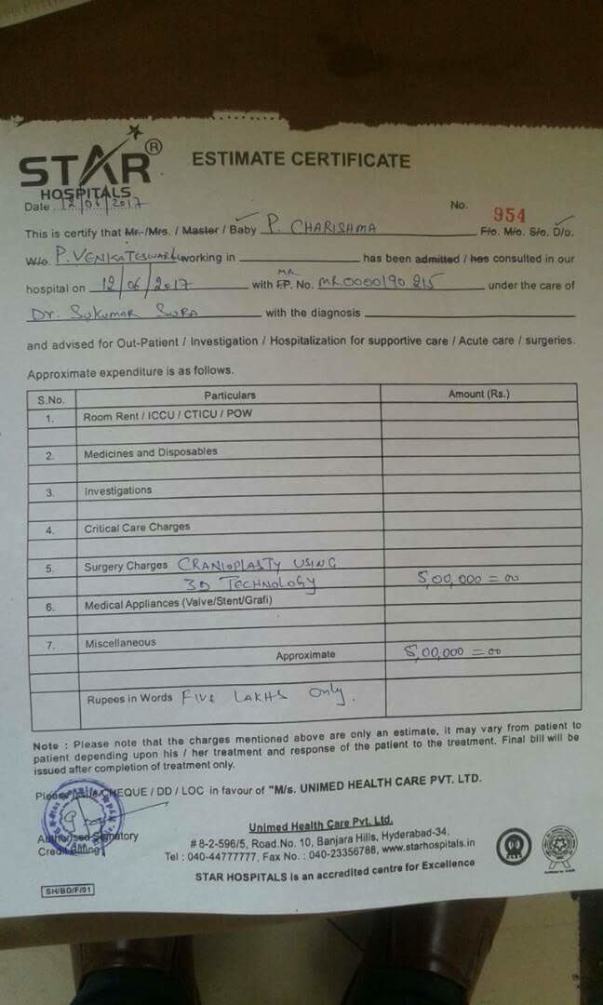 STAR®
HOSPITALS
ESTIMATE CERTIFICATE
Date 12/06/2017
No. 954
This is certify that Mr./Mrs. / Master / Baby P. CHARISHMA F/o. M/o. S/o. D/o.
W/o. P. VENKATESWARLU working in has been admitted / has consulted in our
MR
hospital on 12/06/2017 with I.P. No. MR0000190 215 under the care of
Dr. Sukumar SURA with the diagnosis
and advised for Out-Patient / Investigation / Hospitalization for supportive care / Acute care / surgeries.
Approximate expenditure is as follows.
S.No. Particulars Amount (Rs.)
1. Room Rent / ICCU / CTICU / POW
2. Medicines and Disposables
3. Investigations
4. Critical Care Charges
5. Surgery Charges CRANIOPLASTY USING
3D TECHNOLOGY 5,00,000 = 00
6. Medical Appliances (Valve/Stent/Grafi)
7. Miscellaneous
Approximate 5,00,000 = 00
Rupees in Words FIVE LAKHS Only.
Note : Please note that the charges mentioned above are only an estimate, it may vary from patient to
patient depending upon his / her treatment and response of the patient to the treatment. Final bill will be
issued after completion of treatment only.
CHEQUE / DD / LOC in favour of "M/s. UNIMED HEALTH CARE PVT. LTD.
Unimed Health Care Pvt. Ltd.
Authorised Signatory
# 8-2-596/5, Road.No. 10, Banjara Hills, Hyderabad-34.
Credit Billing
Tel : 040-44777777, Fax No. : 040-23356788, www.starhospitals.in
STAR HOSPITALS is an accredited centre for Excellence
SH/BD/F/01